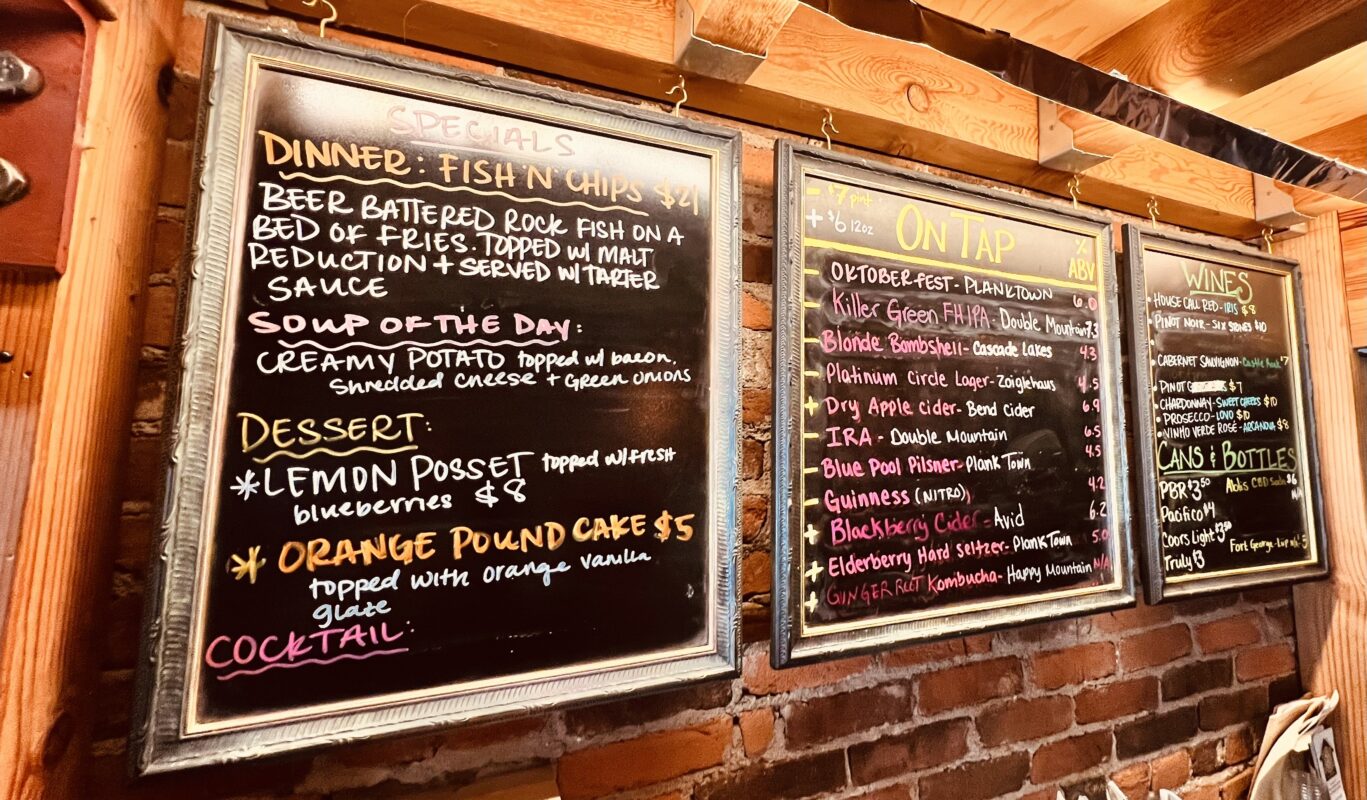 SPECIALS
DINNER: FISH 'N' CHIPS $21
BEER BATTERED ROCK FISH ON A
BED OF FRIES. TOPPED W/ MALT
REDUCTION + SERVED W/ TARTER
SAUCE
SOUP OF THE DAY:
CREAMY POTATO topped w/ bacon,
Shredded cheese + Green onions
DESSERT:
*LEMON POSSET topped w/ fresh
blueberries $8
* ORANGE POUND CAKE $5
topped with orange vanilla
glaze
COCKTAIL:
- $7 pint
+ $6 12oz
ON TAP
% ABV
- OKTOBERFEST - PLANKTOWN 6.0
- Killer Green FHIPA - Double Mountain 7.3
- Blonde Bombshell - Cascade Lakes 4.3
- Platinum Circle Lager - Zoiglehaus 4.5
+ Dry Apple Cider - Bend Cider 6.9
- IRA - Double Mountain 6.5
- Blue Pool Pilsner - Plank Town 4.5
- Guinness (NITRO) 4.2
+ Blackberry Cider - Avid 6.2
+ Elderberry Hard Seltzer - Plank Town 5.0
+ GINGER ROOT Kombucha - Happy Mountain N/A
WINES
• HOUSE CALL RED - IRIS $8
• PINOT NOIR - SIX STONES $10
•
• CABERNET SAUVIGNON - Castle Rock $7
• PINOT $7
• CHARDONNAY - SWEET CHEEKS $10
• PROSECCO - LOVO $10
• VINHO VERDE ROSÉ - ARCANOVA $8
CANS & BOTTLES
PBR $3.50
CBD $6
N/A
Pacifico $4
Coors Light $3.50
Fort George
Truly $3